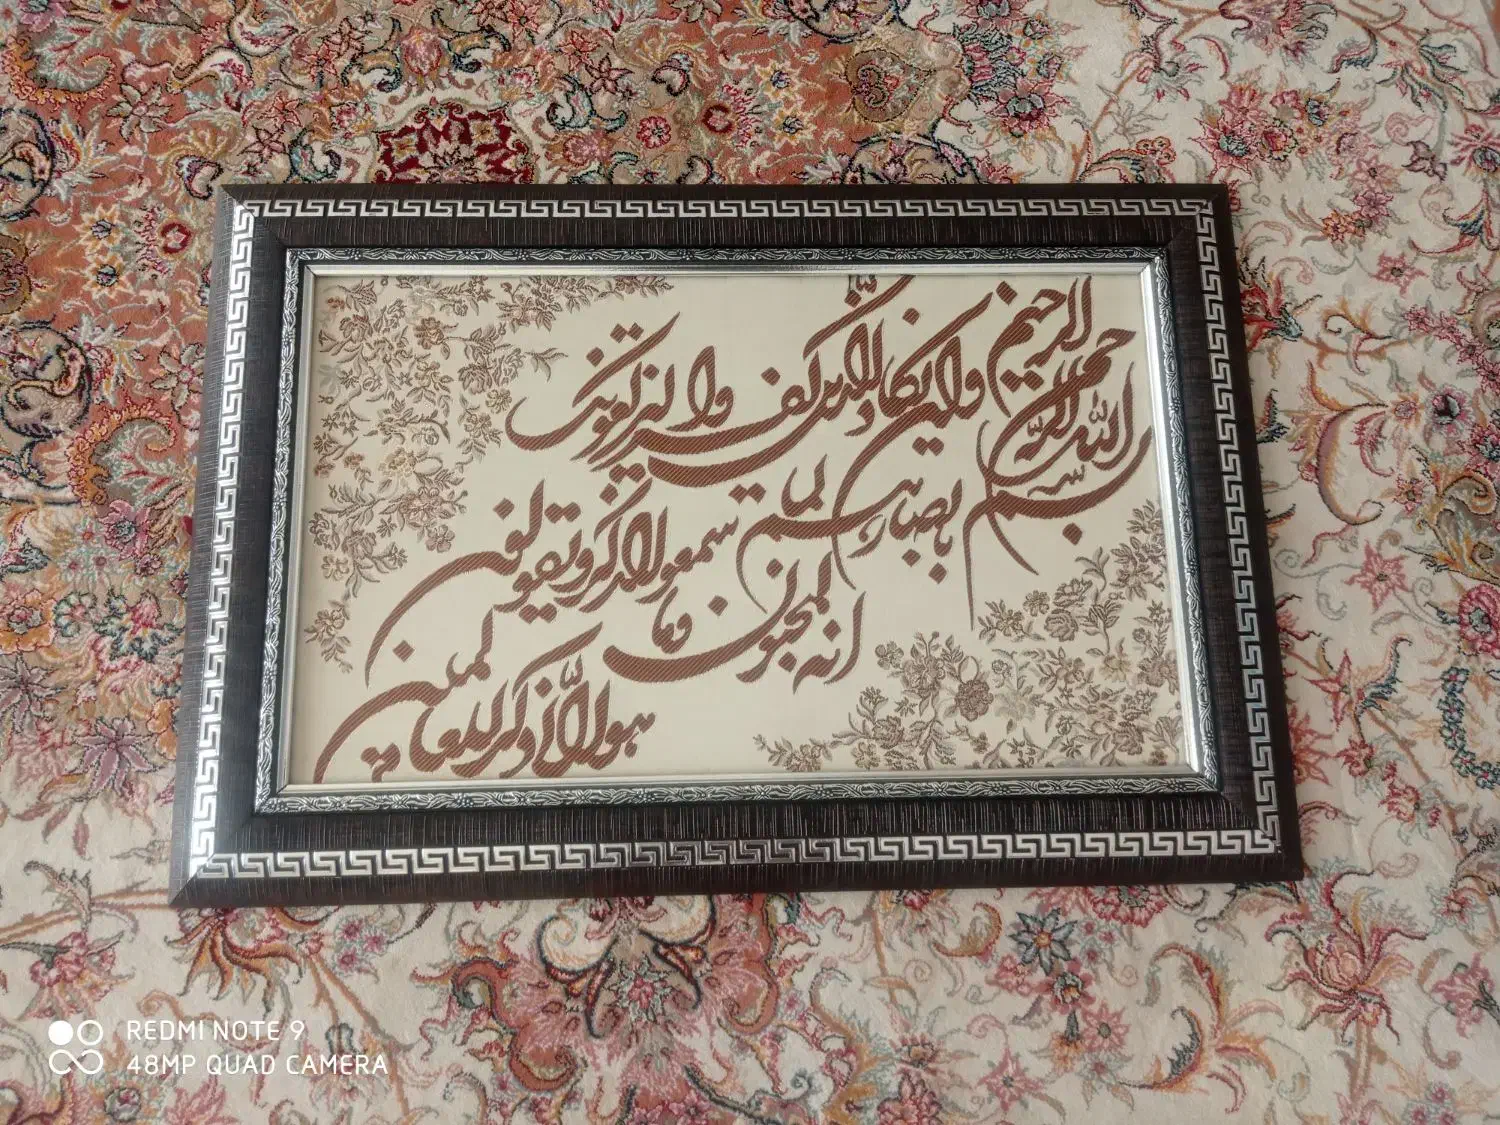 بسم الله الرحمن الرحیم
وان یکاد الذین کفروا لیزلقونک
بابصارهم لما سمعوا الذکر و یقولون
انه لمجنون و ما هو الا ذکر للعالمین
REDMI NOTE 9
48MP QUAD CAMERA